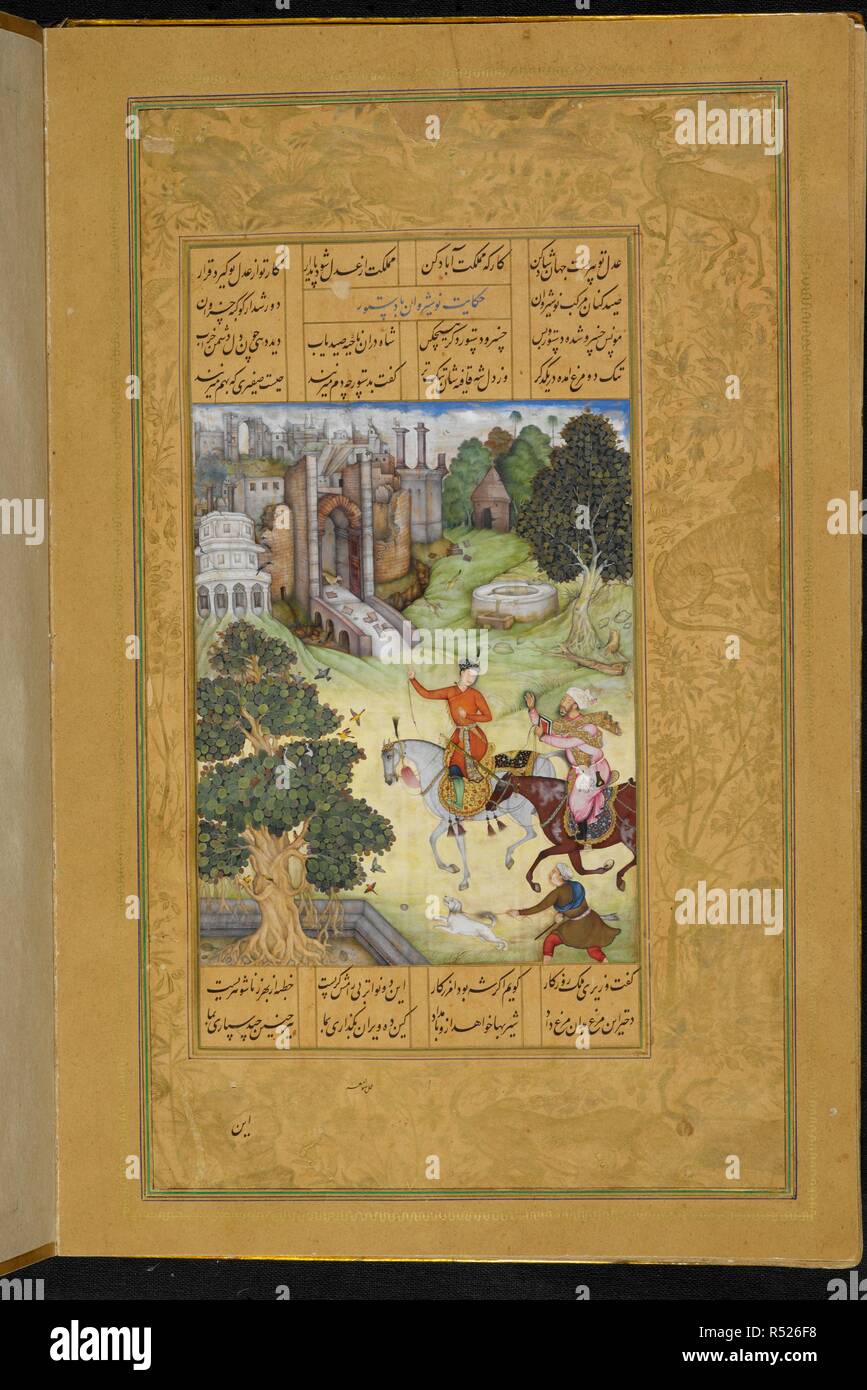 alamy
عدل تو جهان شاد کن کارکه مملکت آباد کن مملکت از عدل شود پایدار کار تو از عدل تو گیرد قرار
صیدکنان مرکب نوشیروان حکایت نوشیروان با دستور دور شد از کوکبه خسروان
مونس خسرو شده دستور و بس خسرو و دستور و دگر هیچکس شاه دران ناحیه صید یاب دید دهی چون دل دشمن خراب
تنک دو مرغ امده در یکدگر وز دل شه قافیه شان تنک تر گفت بدستور چه دم میزنند چیست صفیری که بهم میزنند
گفت وزیر ای ملک روزکار گویم اگر شه بود امرزکار این دو نوا نز پی رامش کریست خطبه از بهر زناشوهریست
دختر این مرغ بدان مرغ داد شیربها خواهد ازو بامداد کین ده ویران بگذاری بما نیز چنین چند سپاری بما
این
alamy
Image ID: R526F8
www.alamy.com